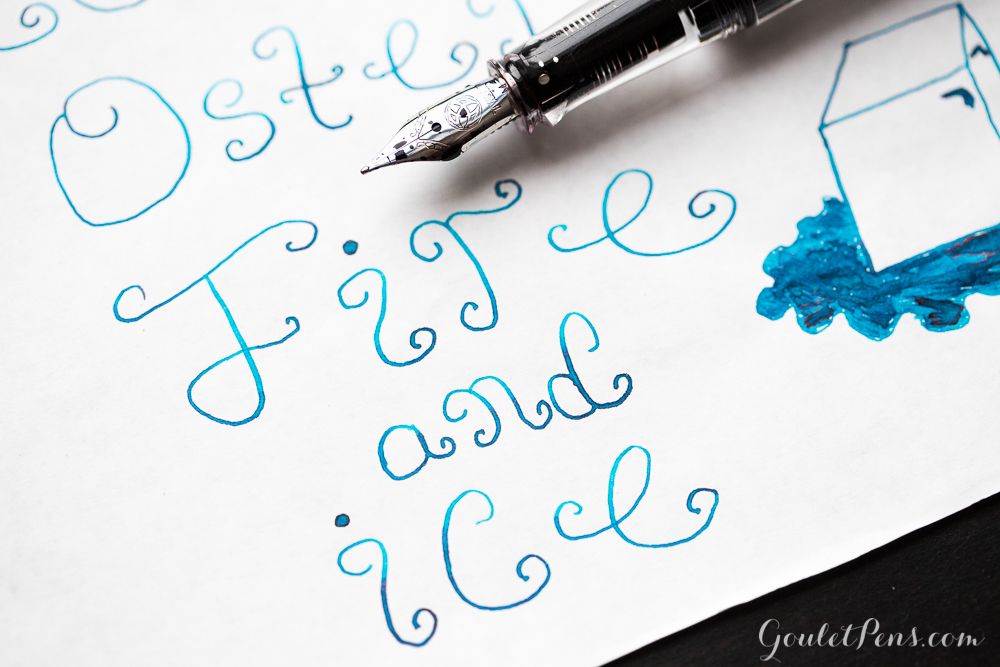 Fire
and
ice
GouletPens.com